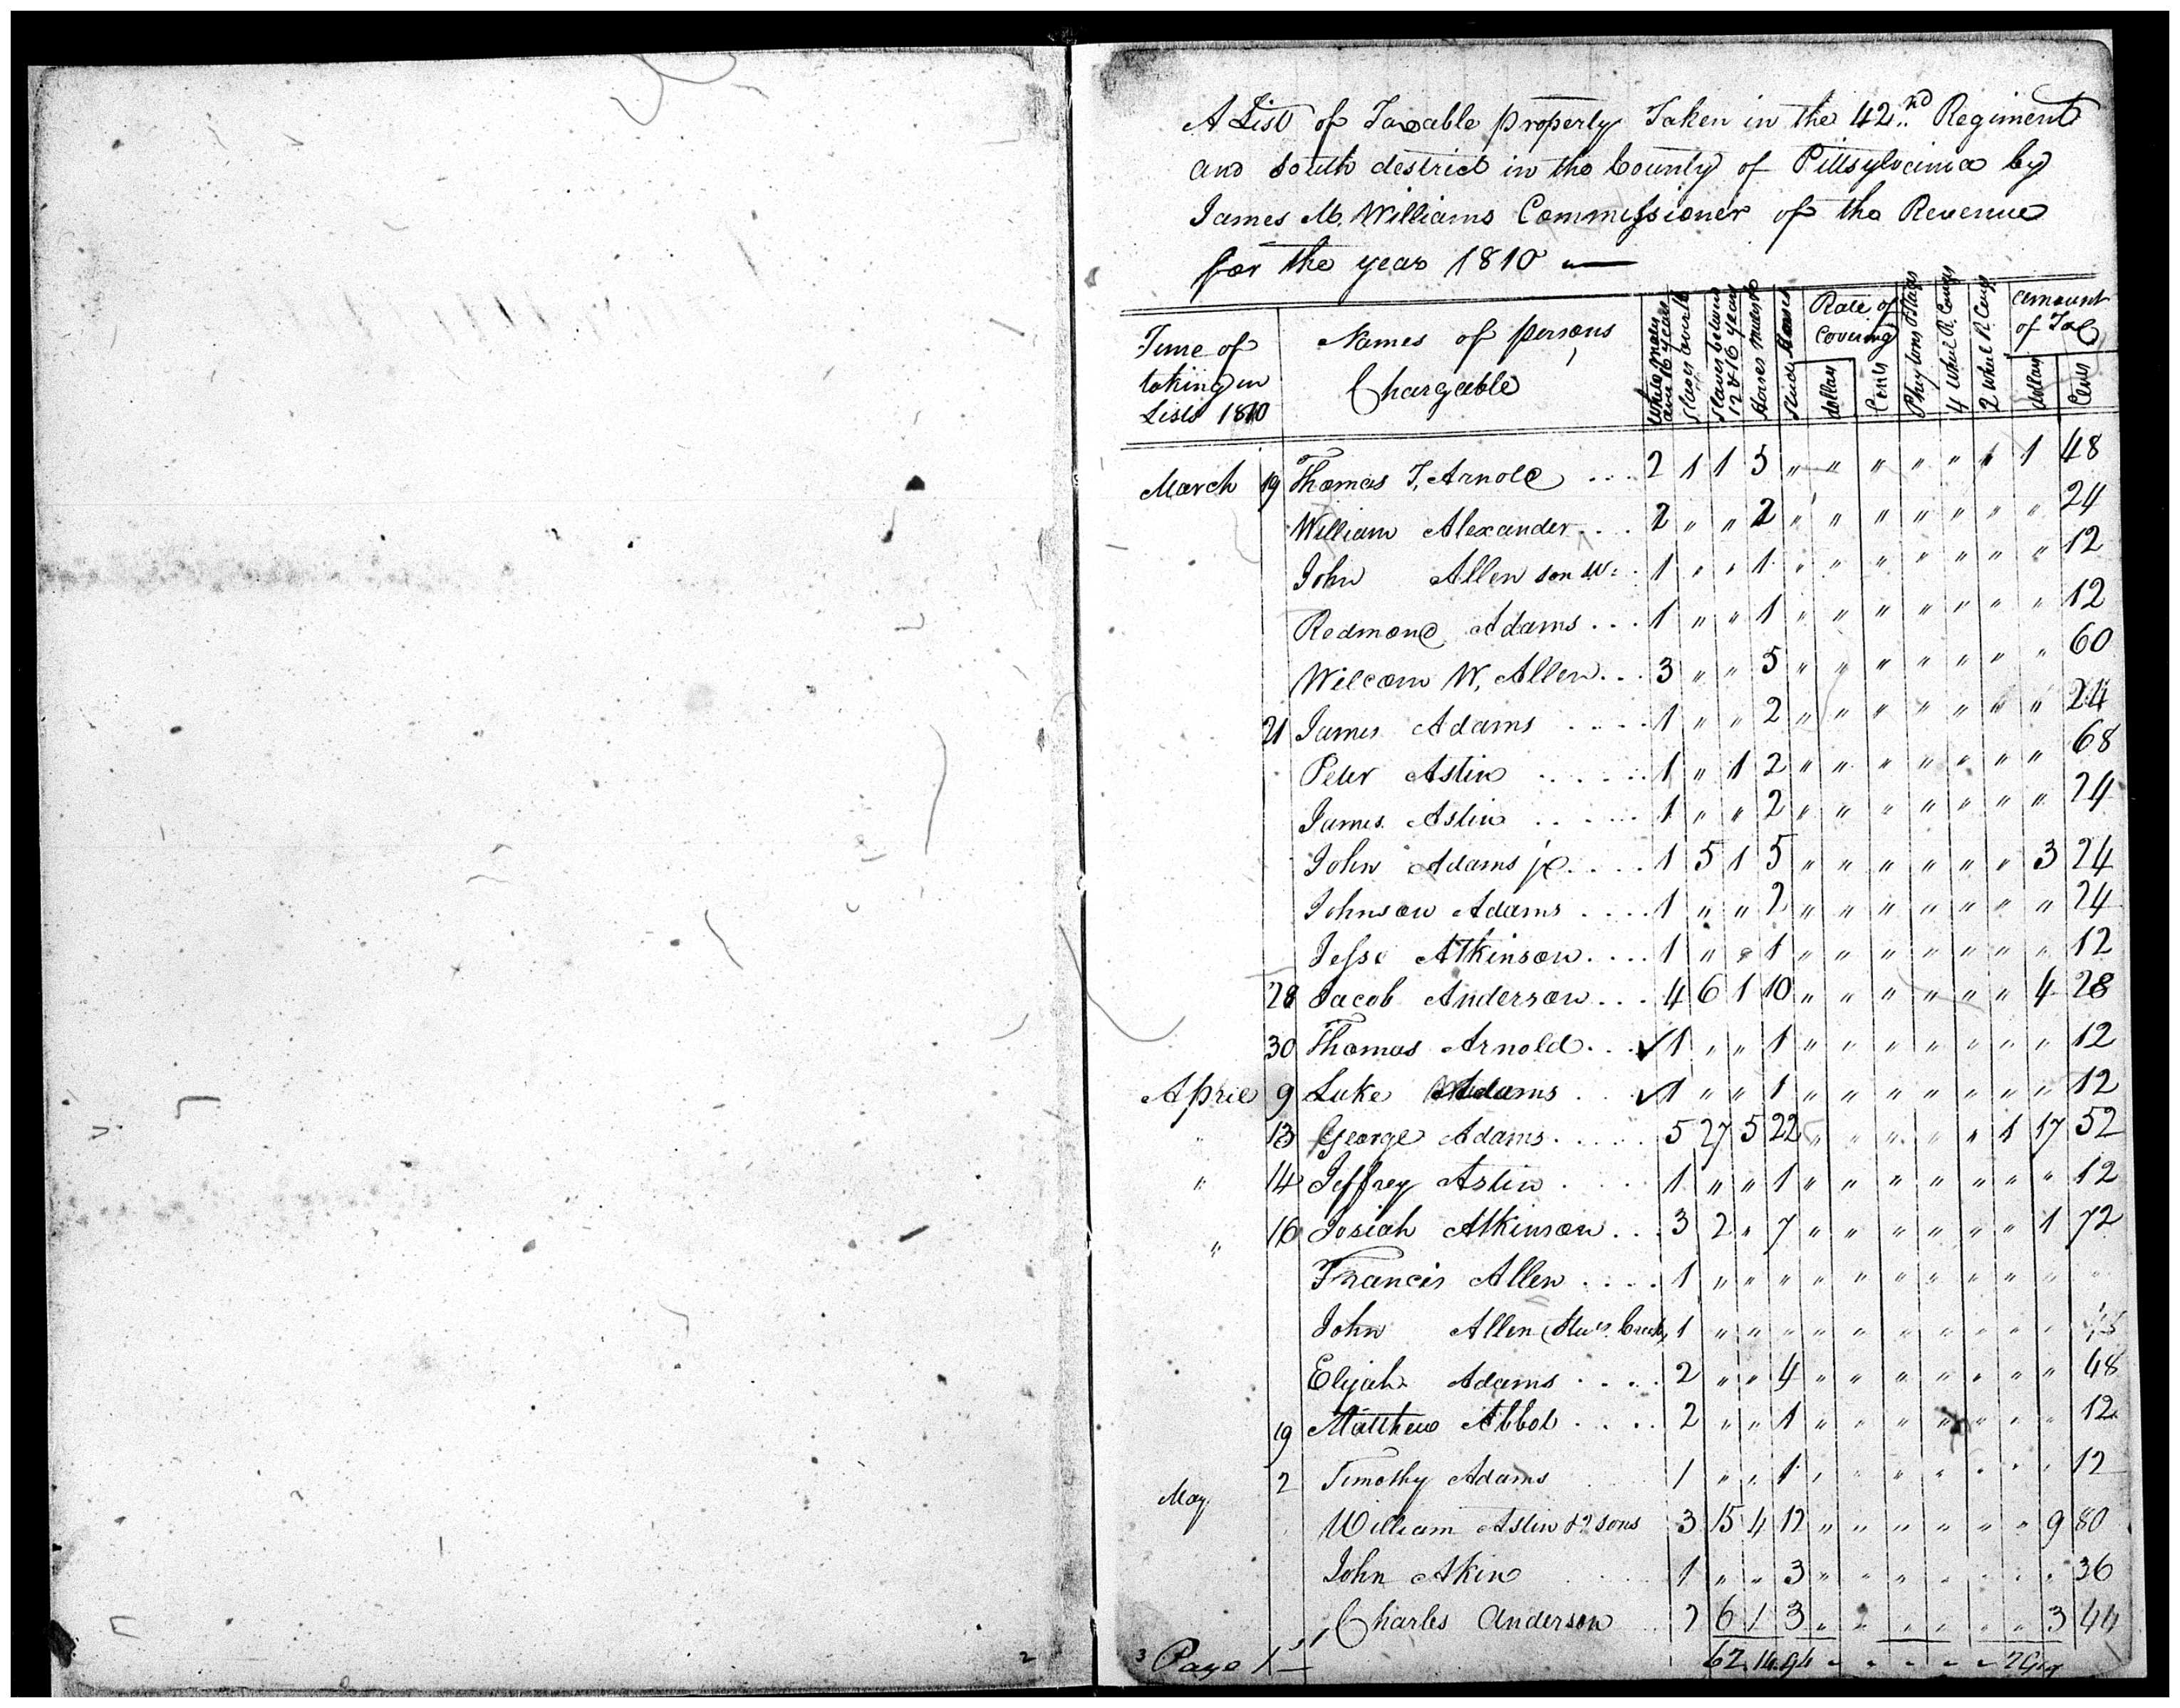 A List of Taxable property Taken in the 42nd Regiment
and South destrict in the County of Pittsylvania by
James M. Williams Commissioner of the Revenue
for the year 1810 —
Time of taking in Lists 1810 | Names of persons Chargable | White males above 16 years | Slaves over 16 | Slaves between 12 & 16 years | Horses Mules &c | Studs Horses | Rate of Covering dollars Cents | Phaytons Stages | 4 Wheel R. Carrgs | 2 Wheel R Carrgs | amount of Tax dollars Cents
March 19 Thomas T. Arnold ... 2 1 1 5 " " " " " " 1 48
William Alexander ... 2 " " 2 " " " " " " " 24
John Allen son W: . 1 " " 1 " " " " " " " 12
Redmond Adams ... 1 " " 1 " " " " " " " 12
Welcom W. Allen ... 3 " " 5 " " " " " " " 60
21 James Adams .... 1 " " 2 " " " " " " " 24
Peter Astin ..... 1 " 1 2 " " " " " " " 68
James Astin ..... 1 " " 2 " " " " " " " 24
John Adams jr .... 1 5 1 5 " " " " " " 3 24
Johnson Adams .... 1 " " 2 " " " " " " " 24
Jesse Atkinson .... 1 " " 1 " " " " " " " 12
28 Jacob Anderson ... 4 6 1 10 " " " " " " 4 28
30 Thomas Arnold .. ✓ 1 " " 1 " " " " " " " 12
April 9 Luke Adams . ✓ 1 " " 1 " " " " " " " 12
" 13 George Adams ..... 5 27 5 22 " " " " " 1 17 52
" 14 Jeffrey Astin .... 1 " " 1 " " " " " " " 12
" 16 Josiah Atkinson ... 3 2 " 7 " " " " " " 1 72
Francis Allen .... 1 " " " " " " " " " " "
John Allen ( Creek) 1 " " " " " " " " " "
Elijah Adams .... 2 " " 4 " " " " " " " 48
19 Matthew Abbot .... 2 " " 1 " " " " " " " 12
May 2 Timothy Adams 1 " " 1 " " " " " " " 12
William Astin & 2 sons 3 15 4 12 " " " " " " 9 80
John Akin 1 " " 3 " " " " " " " 36
Charles Anderson 2 6 1 3 " " " " " " 3 44
62 14 94 " " " " "
2
3 Page 1st